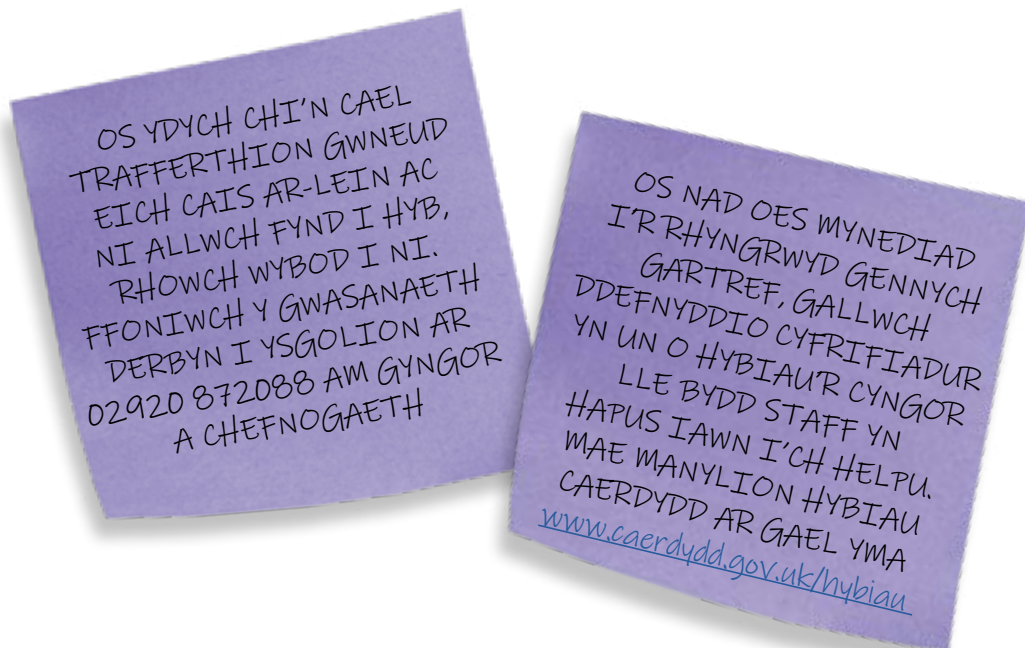 OS YDYCH CHI'N CAEL
TRAFFERTHION GWNEUD
EICH CAIS AR-LEIN AC
NI ALLWCH FYND I HYB,
RHOWCH WYBOD I NI.
FFONIWCH Y GWASANAETH
DERBYN I YSGOLION AR
02920 872088 AM GYNGOR
A CHEFNOGAETH
OS NAD OES MYNEDIAD
I'R RHYNGRWYD GENNYCH
GARTREF, GALLWCH
DDEFNYDDIO CYFRIFIADUR
YN UN O HYBIAU'R CYNGOR
LLE BYDD STAFF YN
HAPUS IAWN I'CH HELPU.
MAE MANYLION HYBIAU
CAERDYDD AR GAEL YMA
www.caerdydd.gov.uk/hybiau